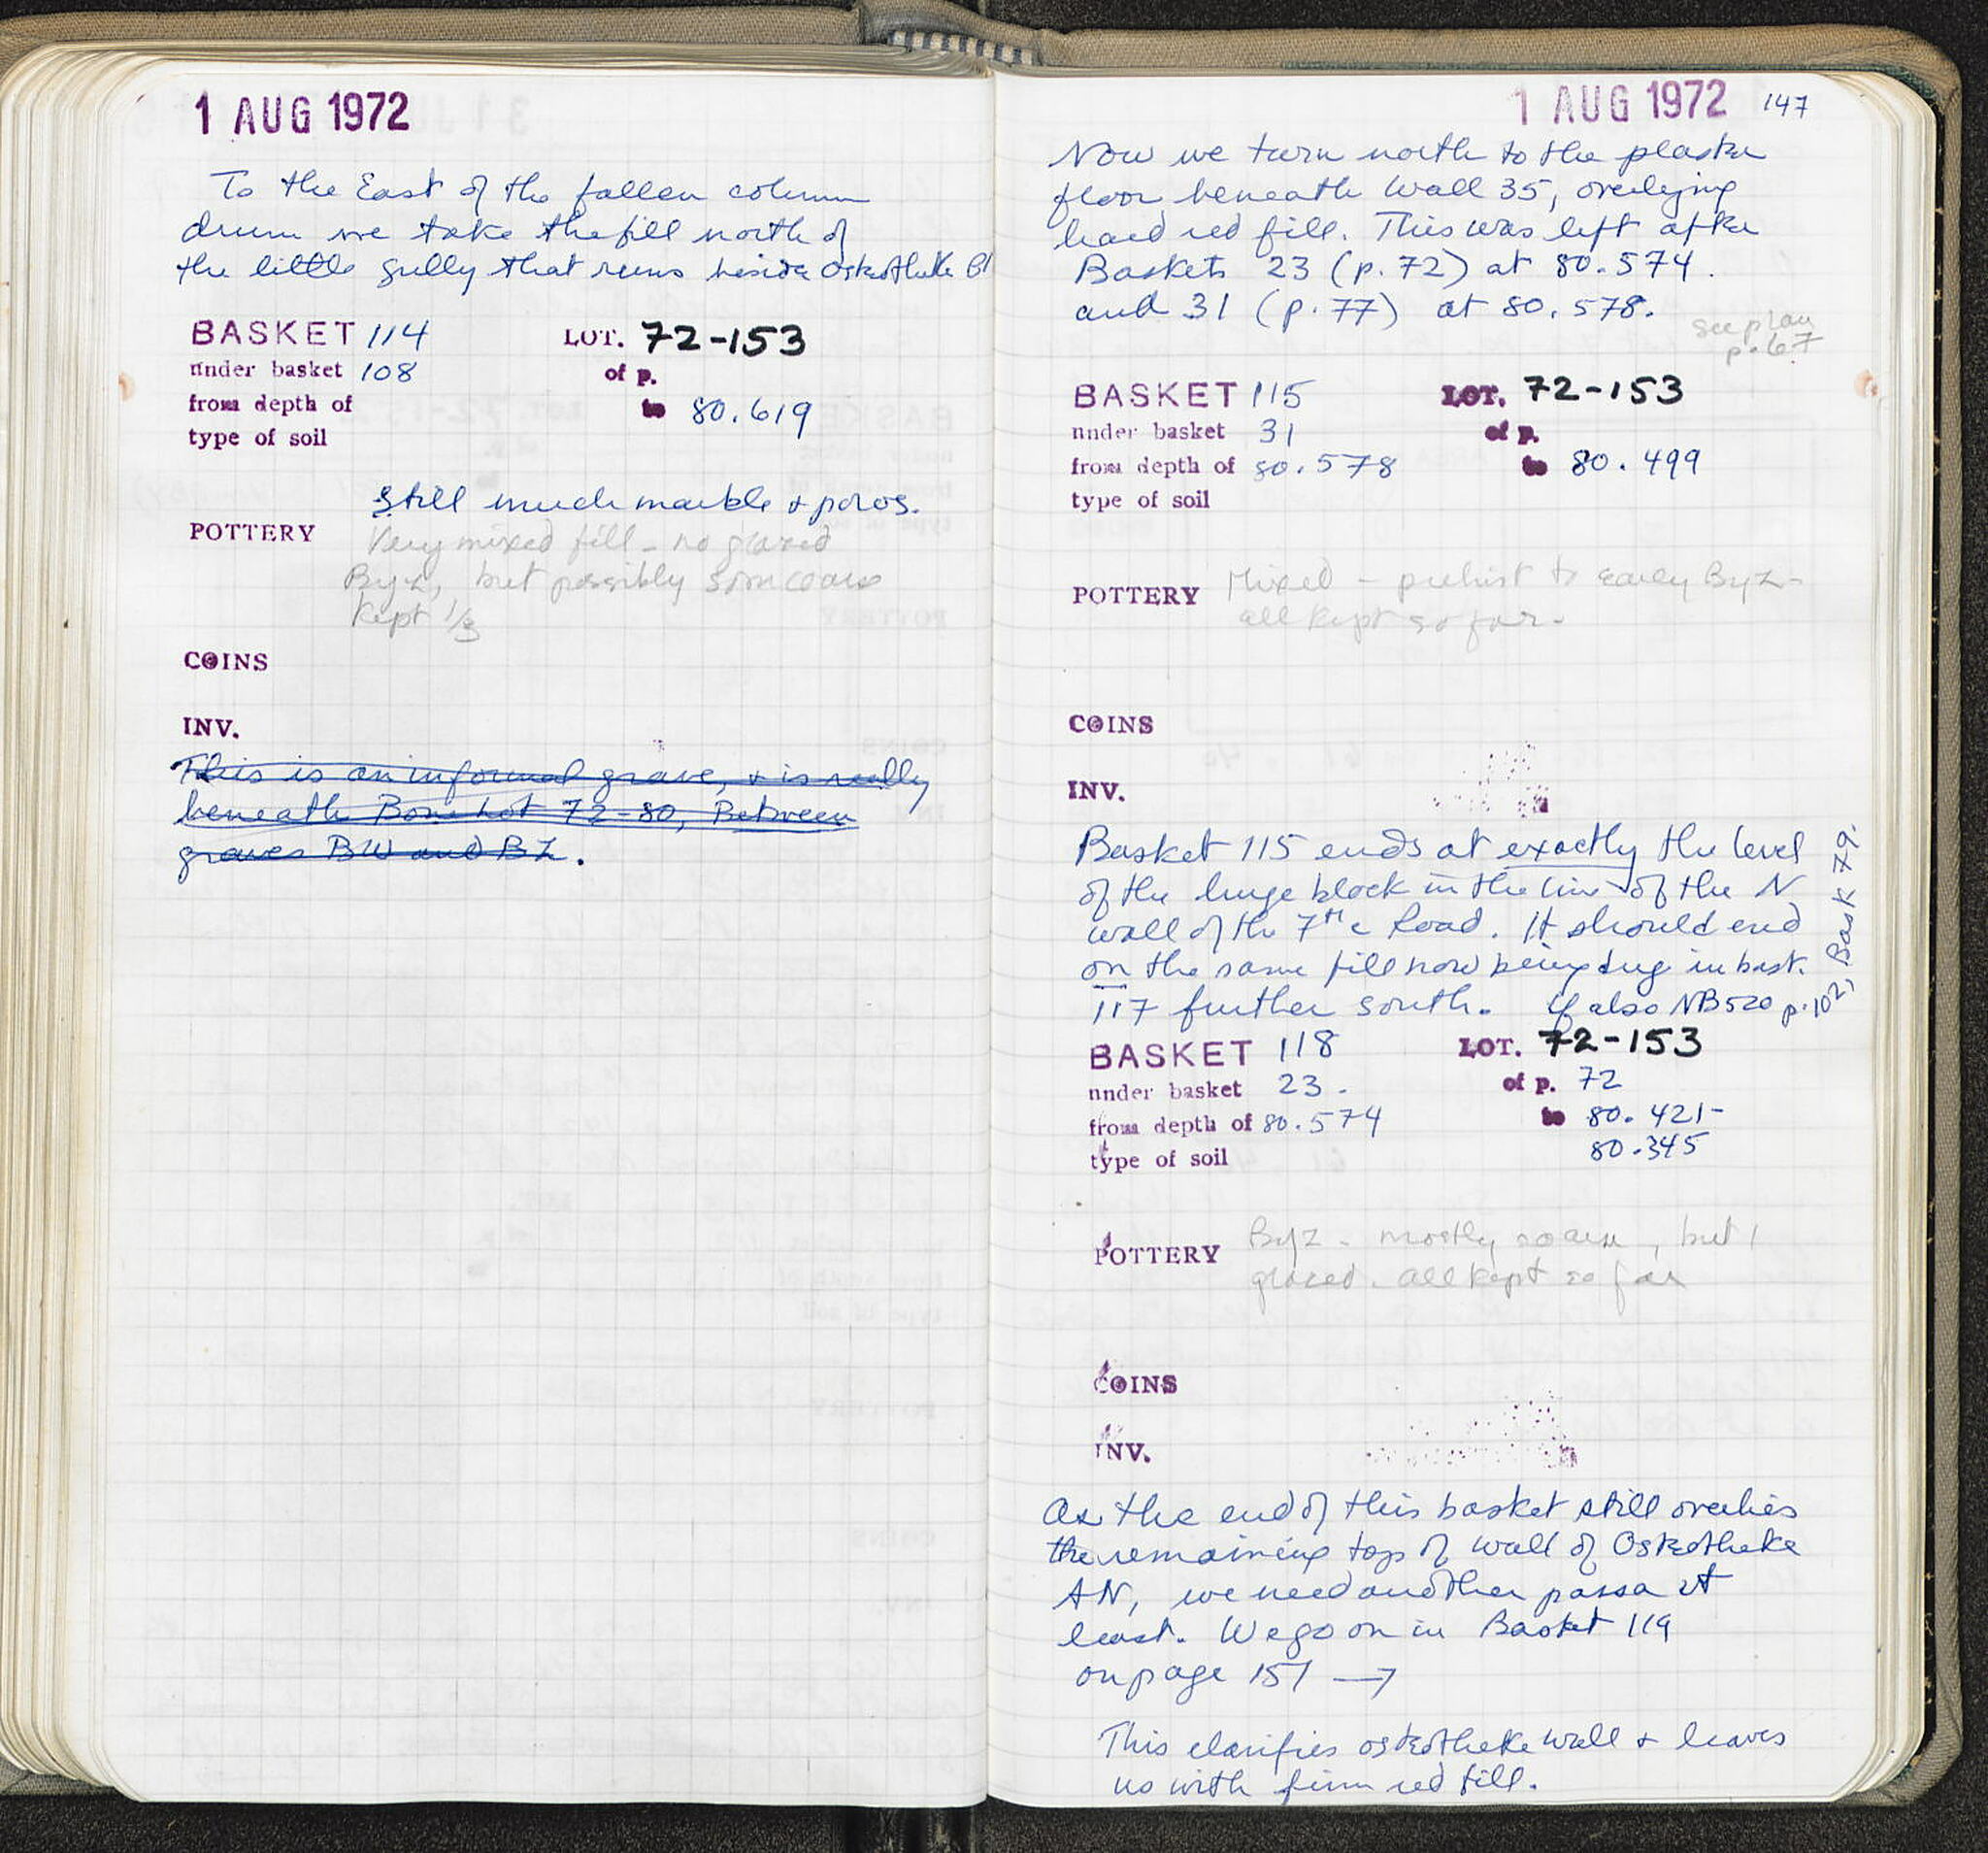 1 AUG 1972
To the East of the fallen column
drum we take the fill north of
the little gully that runs beside Osteotheke BI
BASKET 114 LOT. 72-153
under basket 108 of p.
from depth of to 80.619
type of soil
Still much marble + poros.
POTTERY Very mixed fill - no glazed
Byz, but possibly some coarse
Kept 1/3
COINS
INV.
This is an informal grave, + is really
beneath Bone Lot 72-80, Between
graves BW and BZ.
1 AUG 1972 147
Now we turn north to the plaster
floor beneath Wall 35, overlying
hard red fill. This was left after
Baskets 23 (p. 72) at 80.574.
and 31 (p. 77) at 80.578.
see plan
p. 67
BASKET 115 LOT. 72-153
under basket 31 of p.
from depth of 80.578 to 80.499
type of soil
POTTERY Mixed - prehist to early Byz-
all kept so far.
COINS
INV.
Basket 115 ends at exactly the level
of the huge block in the line of the N
wall of the 7th c Road. It should end
on the same fill now being dug in bask.
117 further south. cf also NB520 p. 102, Bask 79.
BASKET 118 LOT. 72-153
under basket 23. of p. 72
from depth of 80.574 to 80.421-
type of soil 80.345
POTTERY Byz - mostly coarse, but 1
glazed. all kept so far
COINS
INV.
As the end of this basket still overlies
the remaining top of wall of Osteotheke
AN, we need another pass at
least. We go on in Basket 119
on page 151 →
This clarifies osteotheke wall + leaves
us with firm red fill.